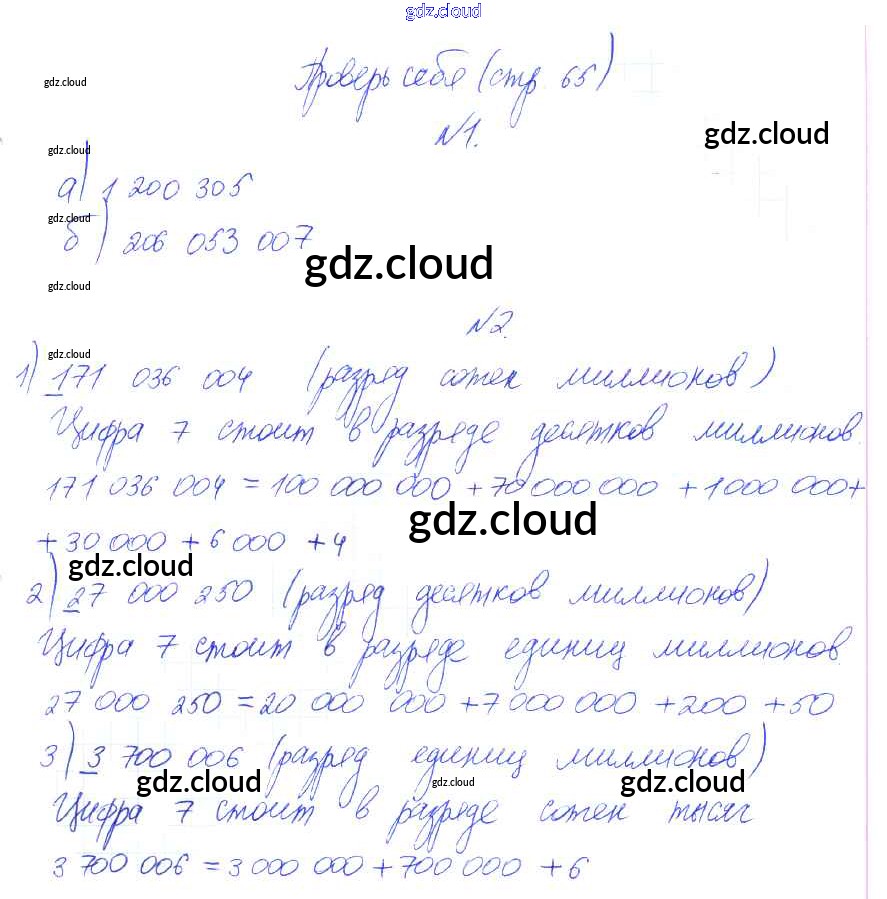 gdz.cloud
Проверь себя (стр. 65)
gdz.cloud
№1.
gdz.cloud
gdz.cloud
а) 1 200 305
gdz.cloud
б) 206 053 007
gdz.cloud
gdz.cloud
№2.
gdz.cloud
1) 171 036 004 (разряд сотен миллионов)
Цифра 7 стоит в разряде десятков миллионов.
171 036 004 = 100 000 000 + 70 000 000 + 1 000 000 +
gdz.cloud
+ 30 000 + 6 000 + 4
gdz.cloud
2) 27 000 250 (разряд десятков миллионов)
Цифра 7 стоит в разряде единиц миллионов
27 000 250 = 20 000 000 + 7 000 000 + 200 + 50
3) 3 700 006 (разряд единиц миллионов)
gdz.cloud gdz.cloud gdz.cloud
Цифра 7 стоит в разряде сотен тысяч
3 700 006 = 3 000 000 + 700 000 + 6